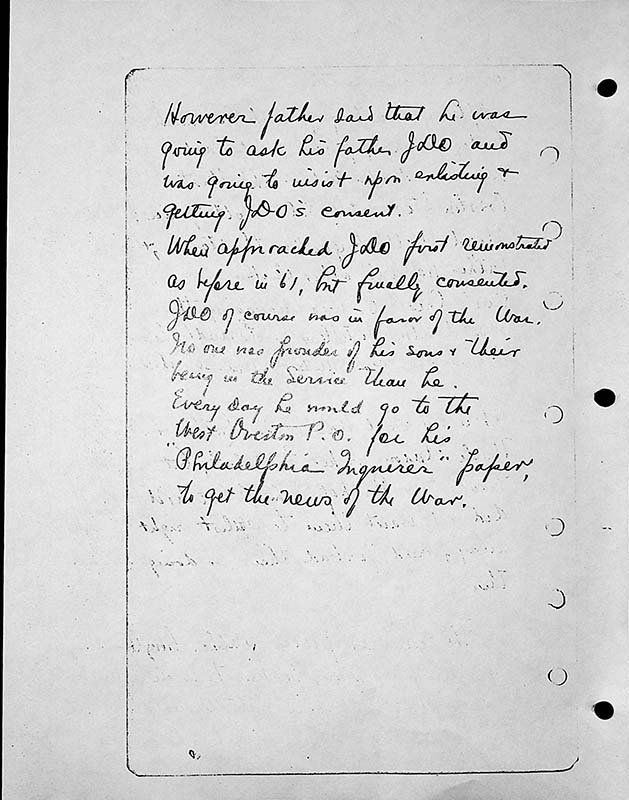 However father said that he was
going to ask his father JDO and
was going to insist upon enlisting &
getting JDO's consent.
When approached JDO first remonstrated
as before in '61, but finally consented.
JDO of course was in favor of the War.
No one was prouder of his sons & their
being in the Service than he.
Every day he would go to the
West Overton P.O. for his
"Philadelphia Inquirer" paper,
to get the news of the War.